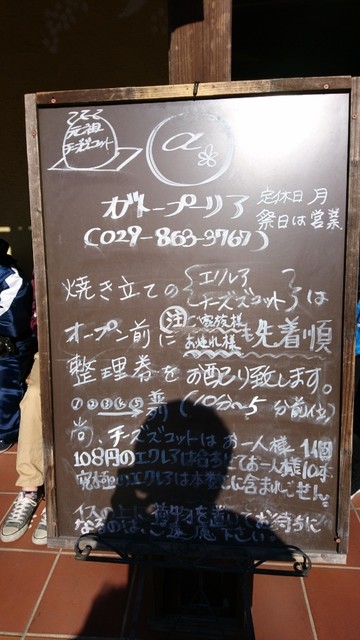 元祖
チーズズコット
α
ガトープーリア
定休日 月
祭日は営業
(029-863-3767)
焼き立ての エクレア チーズズコット は
オープン前に 注 ご家族様 お連れ様 も 先着順
整理券をお配り致します。
①②③④⑤ (10分〜5分前位)
尚、チーズズコットはお一人様 1個
108円のエクレアは合わせてお一人様10本
究極のエクレアは本数に含まれません。
イスの上に荷物を置いてお待ちに
なるのは、ご遠慮下さい